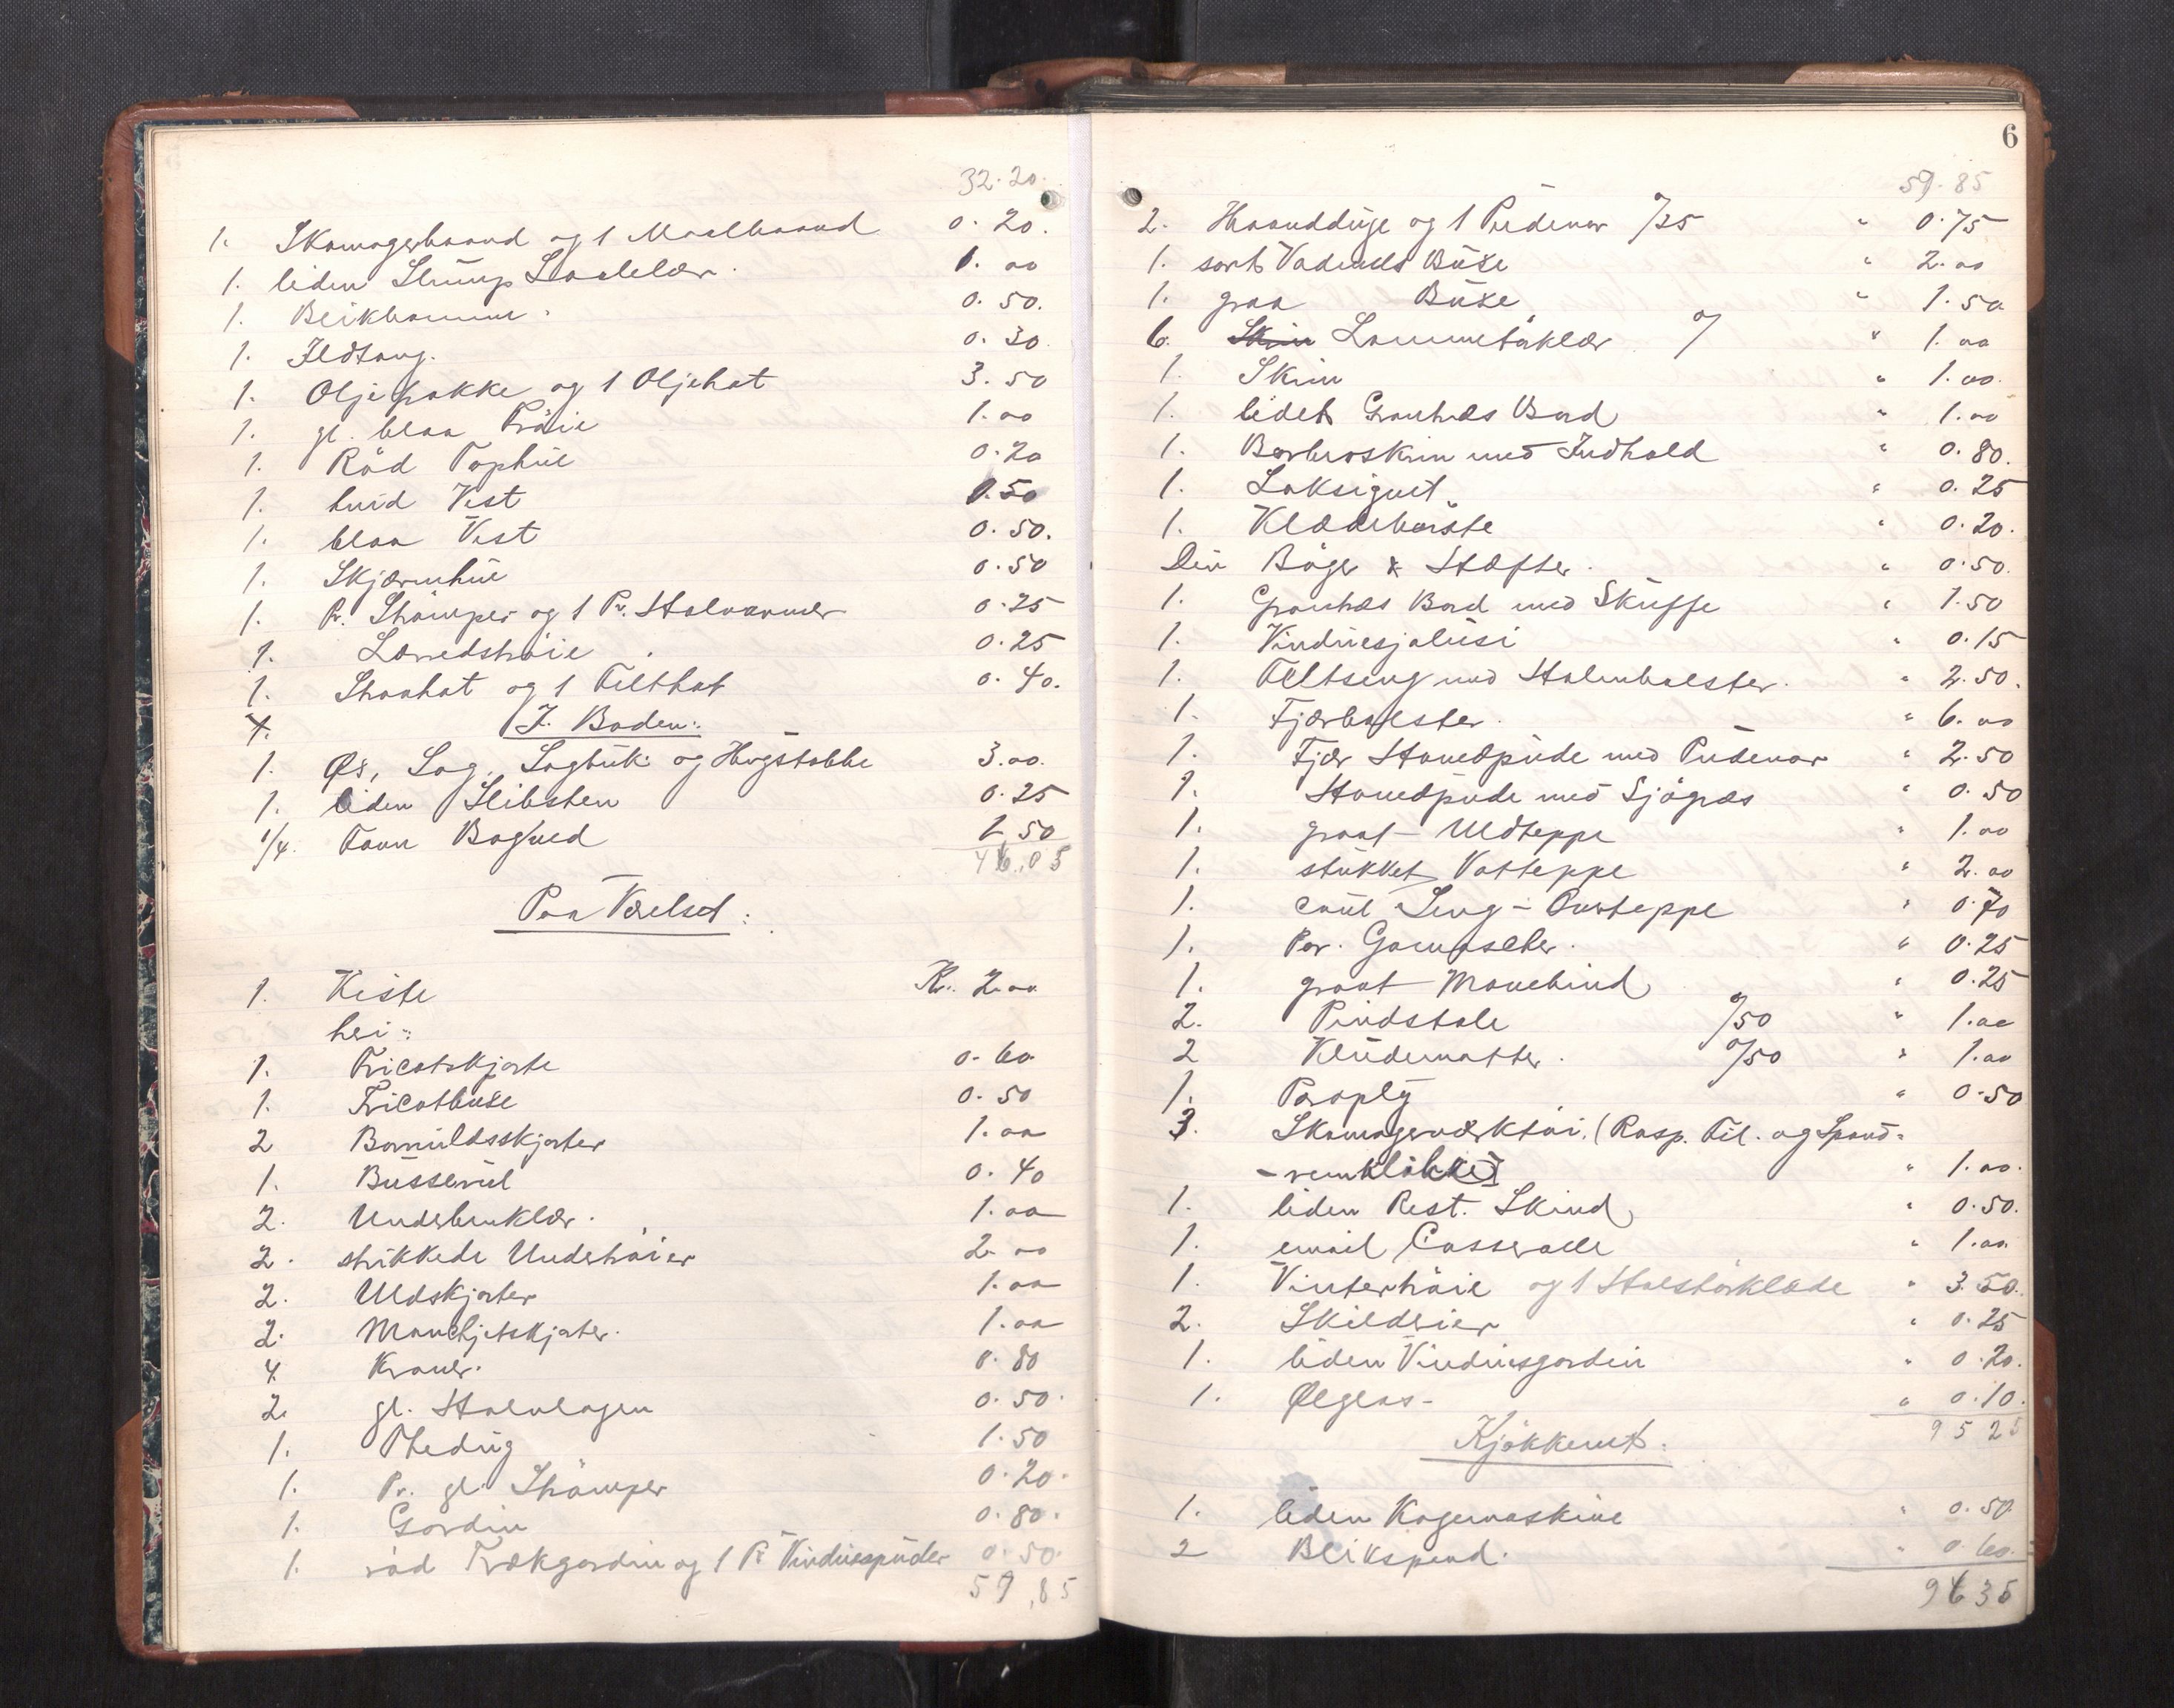 32.20.
1. Skomagerbaand og 1 Maalbaand 0.20.
1. liden Stump Saalelær. 1.00
1. Blikkamme. 0.50.
1. Ildtang. 0.30
1. Oljefrakke og 1 Oljehat 3.50
1. gl. blaa Tröie 1.00
1. Röd Tophue 0.20
1. hvid Vest 0.50
1. blaa Vest 0.50.
1. Skjærmhue 0.50
1. Pr. Strömper og 1 Pr. Halvvanter 0.25
1. Lærredströie 0.25
1. Straahat og 1 Filthat 0.40.
I. Boden:
1. Øs, Sag, Sagbuk og Hugstabbe 3.00.
1. liden Slibsten 0.25
1/4. Favn Bagved 1 50
46.05
Paa Værelset:
1. Kiste Kr. 2.00
hei:
1. Tricotskjorte 0.60
1. Tricotbuxe 0.50
2 Bomuldsskjorter 1.00
1. Busserul 0.40
2. Underbenklær. 1.00
2. strikkede Undertröier 2.00
2. Uldskjorter 1.00
2. Manchjetskjorter. 1.00
4 Kraver. 0.80
2. gl. Halvlagen 0.50.
1. Thedug 1.50
1. Pr. gl. Strömper 0.20.
1. Gardin 0.80.
1. röd Trækgardin og 1 Pr Vinduespuder 0.50.
59,85
6
59.85
2. Haandduge og 1 Pudevar a/25 " 0.75
1. sort Vadmels Buxe " 2.00
1. graa Buxe " 1.50
6. Skrin Lommetörklær a/ " 1.00
1. Skrin " 1.00.
1. lidet Granhæs Bord " 1.00
1. Barberskrin med Indhold " 0.80.
1. Laksignet " 0.25
1. Klædebörste " 0.20.
Div Böger & Hæfter. " 0.50.
1. Granhæs Bord med Skuffe " 1.50
1. Vinduesjalusi " 0.15
1. Feltseng med Halmbolster. " 2.50.
1. Fjærbolster. " 6.00
1. Fjær Hovedpude med Pudevar " 2.50
1. Hovedpude med Sjögræs " 0.50
1. graat Uldteppe " 1.00
1. stukket Vatteppe " 2.00
1. coul Seng-Overteppe " 0.70
1. Par. Gamascher. " 0.25
1. graat Mavebind " 0.25
2. Pindstole a/50 " 1.00
2 Kludematter. a/50 " 1.00
1. Paraply " 0.50
3. Skomagerværktöi. (Rasp. Fil. og Spand-
-remklökke) " 1.00.
1. liden Rest. Skind " 0.50.
1. email Casserolle " 1.00
1. Vintertröie og 1 Halstörklæde " 3.50.
2. Skilderier " 0.25
1. liden Vinduesgardin " 0.20.
1. Ølglas- " 0.10.
95 25
Kjökkenet.
1. liden Kogemaskine " 0.50.
2 Blikspand. " 0.60.
96 35